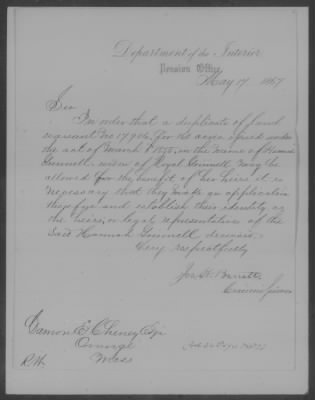 Department of the Interior
Pension Office
May 17 1867
Sir
In order that a duplicate of Land
Warrant No 17.906, for 160 acres issued under
the act of March 3 1855, in the name of Hannah
Gunnell widow of Royal Gunnell may be
allowed for the benefit of her heirs it is
necessary that they make an application
therefor and establish their identity as
the heirs, or legal representatives of the
said Hannah Gunnell deceased.
Very respectfully
Jos. H. Barrett
Commissioner
E. Cheney Esqr
Orange
Mass
R.W.